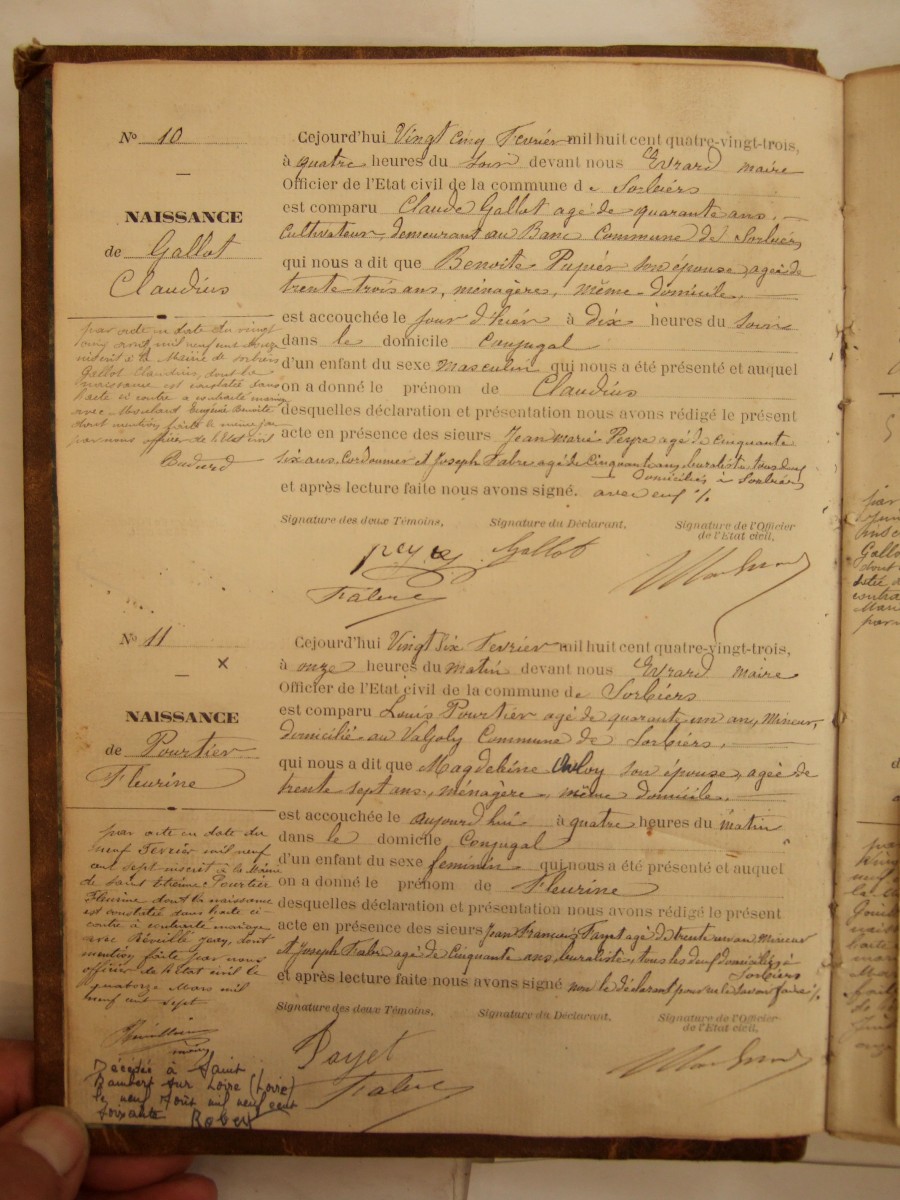 Nº 10
NAISSANCE
de Gallot
Claudius
par acte en date du vingt
cinq août mil neuf cent onze
inscrit à la Mairie de Sorbiers
Gallot Claudius, dont la
naissance est constatée dans
l'acte ci contre a contracté mariage
avec Mouhard Eugénie Benoite
dont mention faite le même jour
par nous officier de l'Etat civil
Cejourd'hui Vingt cinq Fevrier mil huit cent quatre-vingt-trois,
à quatre heures du soir devant nous Evrard maire
Officier de l'Etat civil de la commune de Sorbiérs
est comparu Claude Gallot agé de quarante ans.
Cultivateur, demeurant au Banc Commune de Sorbiérs
qui nous a dit que Benoite Pupier son épouse, agée de
trente trois ans, ménagères, même domicile,
est accouchée le jour d'hiér à dix heures du soire
dans le domicile Conjugal
d'un enfant du sexe masculin qui nous a été présenté et auquel
on a donné le prénom de Claudius
desquelles déclaration et présentation nous avons rédigé le présent
acte en présence des sieurs Jean marie Peyre agé de cinquante
six ans, Cordonnier et Joseph Fabre agé de cinquante ans, buraliste, tous deux
Domiciliés à Sorbiérs
et après lecture faite nous avons signé. avec eux %
Signature des deux Témoins, Signature du Déclarant, Signature de l'Officier
de l'Etat civil,
peyre Gallot
Fabre
Nº 11
×
NAISSANCE
de Pourtier
Fleurine
par acte en date du
neuf Février mil neuf
cent sept inscrit à la Mairie
de Saint Etienne Pourtier
Fleurine dont la naissance
est constatée dans l'acte ci-
contre à contracté mariage
avec Réveille Jean, dont
mention faite par nous
officier de l'Etat civil le
quatorze Mars mil
neuf cent sept
Décédée à Saint
Rambert sur Loire (Loire)
le neuf Août mil neuf cent
soixante Robert
Cejourd'hui Vingt six Fevrier mil huit cent quatre-vingt-trois,
à onze heures du matin devant nous Evrard maire
Officier de l'Etat civil de la commune de Sorbiérs
est comparu Louis Pourtier agé de quarante un ans, Mineur,
domicilié au Valjoly Commune de Sorbiérs.
qui nous a dit que Magdeleine son épouse, agée de
trente sept ans, ménagère, même domicile.
est accouchée le aujourd'hui à quatre heures du matin
dans le domicile Conjugal
d'un enfant du sexe feminin qui nous a été présenté et auquel
on a donné le prénom de Fleurine
desquelles déclaration et présentation nous avons rédigé le présent
acte en présence des sieurs Jean Francois Payet agé de trente un an Mineur
et Joseph Fabre agé de Cinquante ans, buraliste, tous les deux domiciliés à
Sorbiers
et après lecture faite nous avons signé non le déclarant pour ne le savoir faire %
Signature des deux Témoins, Signature du Déclarant, Signature de l'Officier
de l'Etat civil,
Payet
Fabre